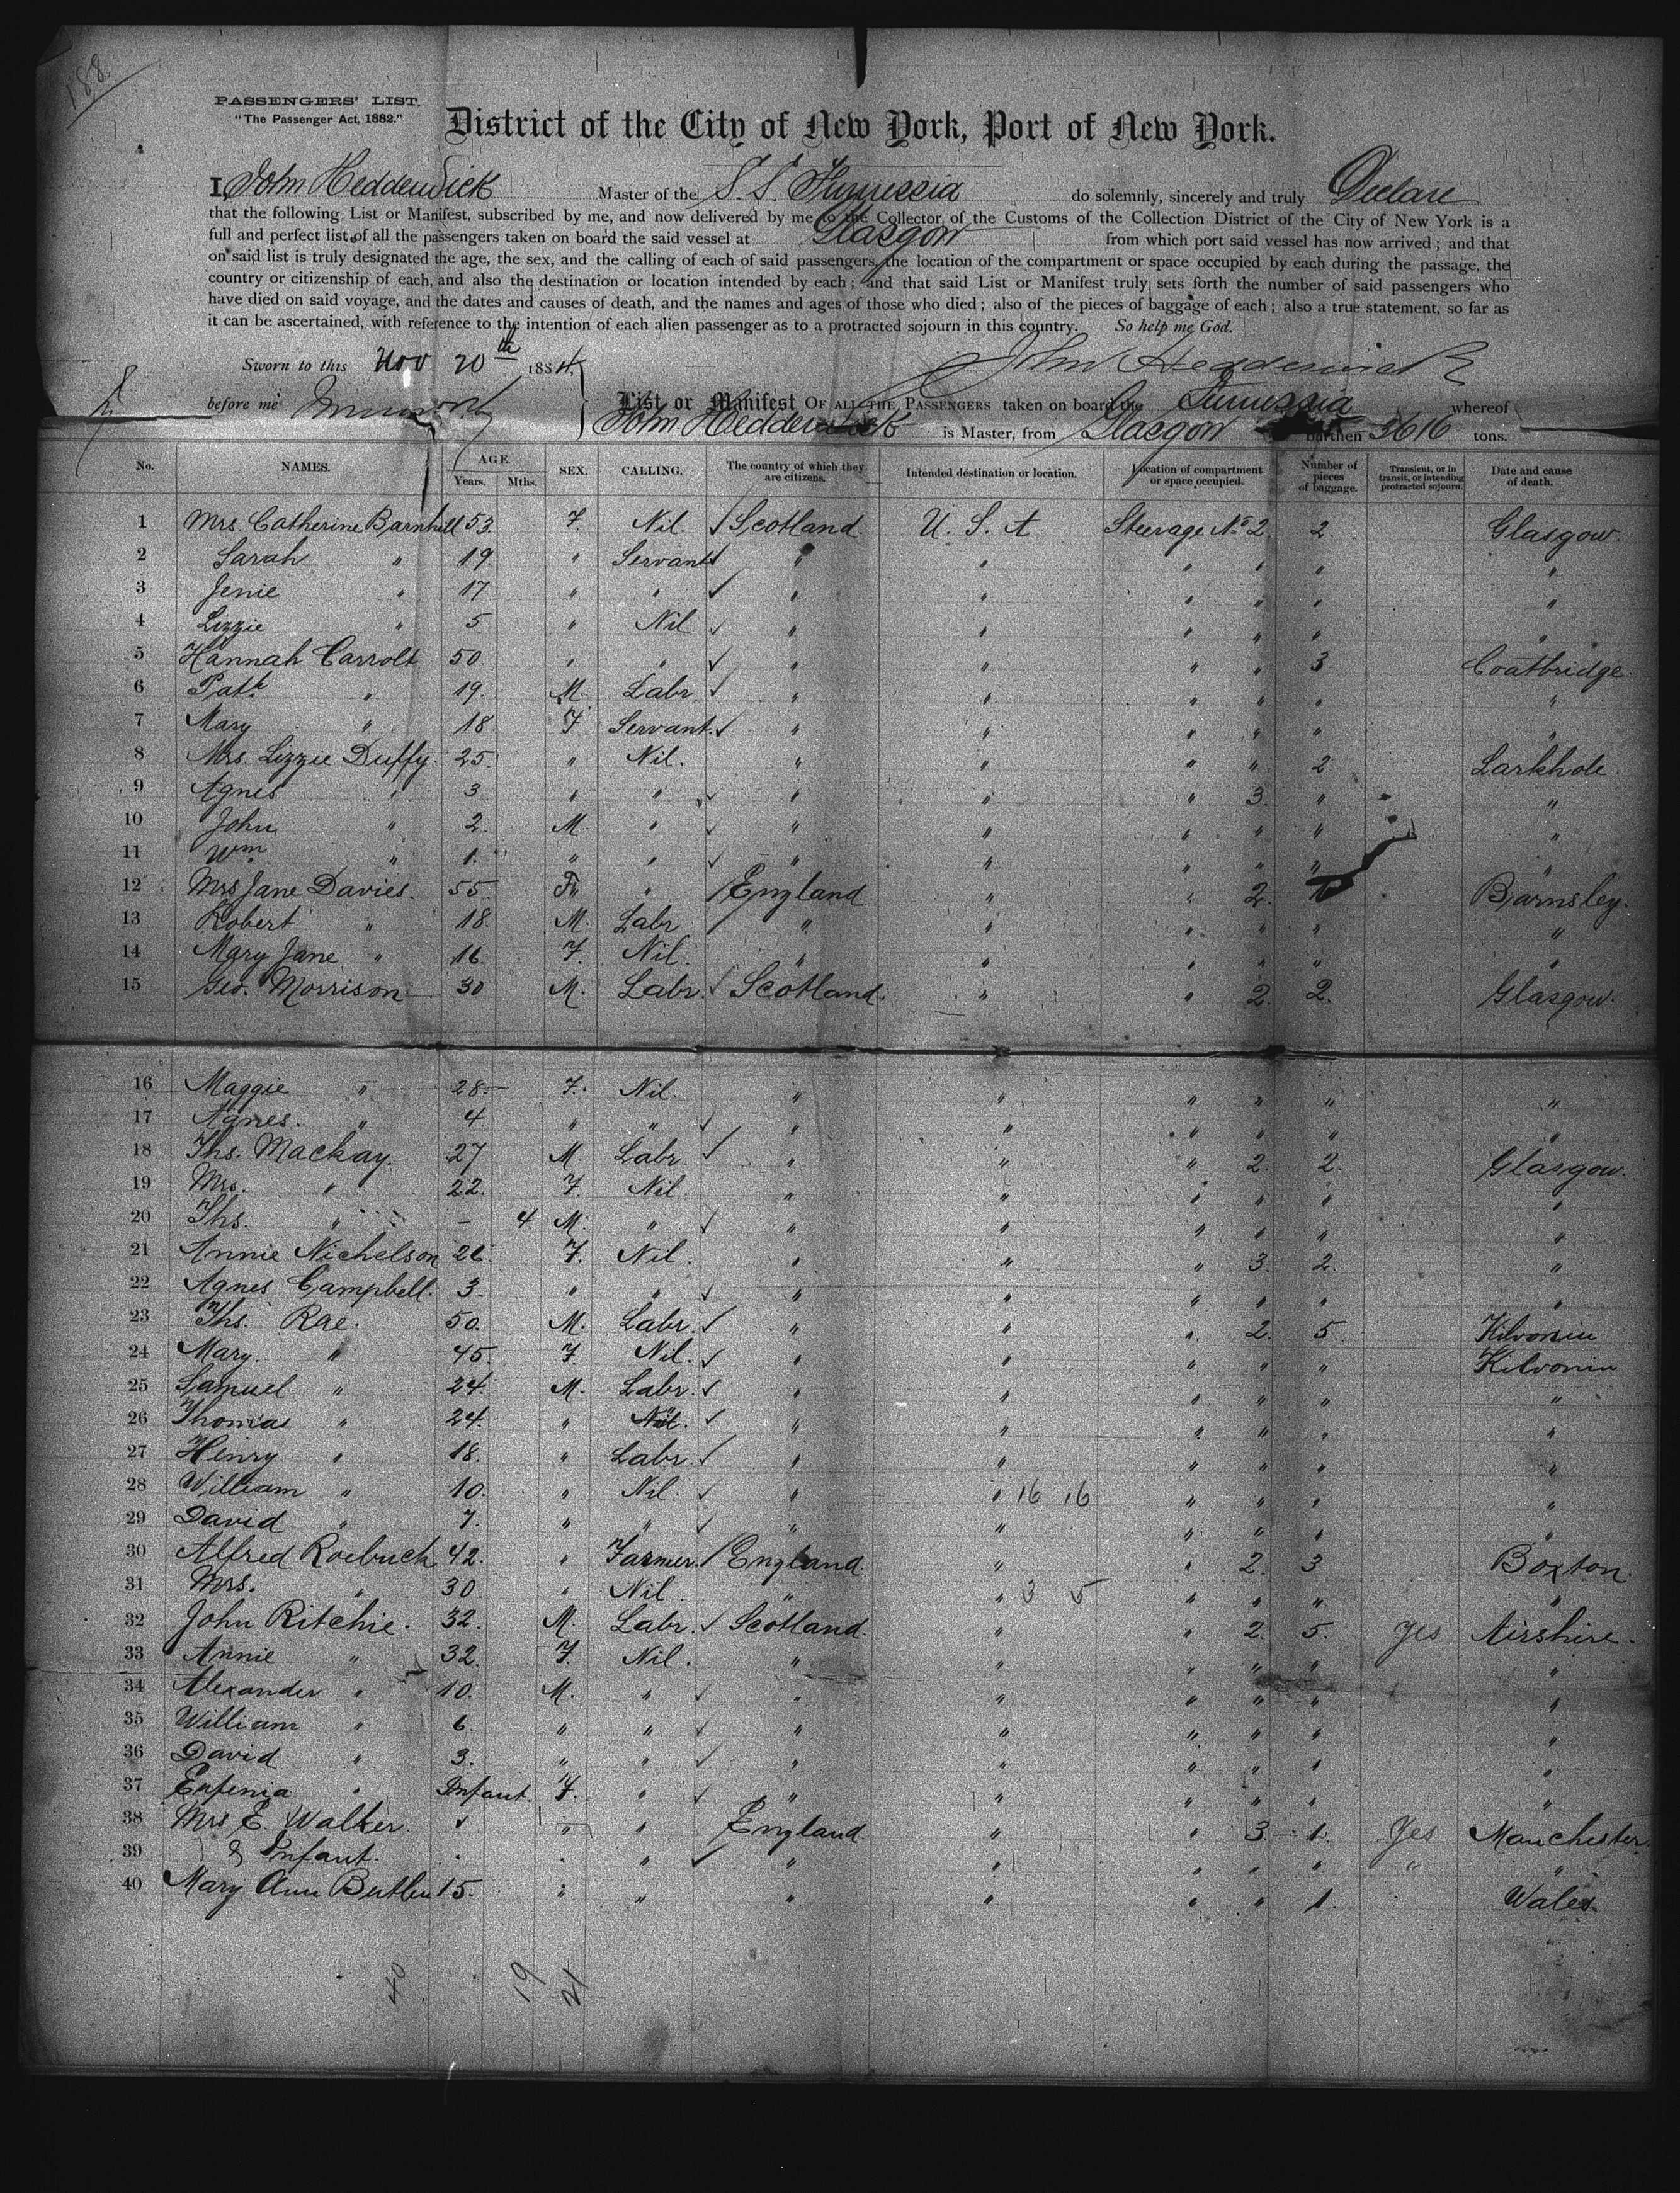 188
PASSENGERS' LIST.
"The Passenger Act, 1882."
District of the City of New York, Port of New York.
I, John Hedderwick Master of the S.S. Furnessia do solemnly, sincerely and truly Declare
that the following List or Manifest, subscribed by me, and now delivered by me to the Collector of the Customs of the Collection District of the City of New York is a
full and perfect list of all the passengers taken on board the said vessel at Glasgow from which port said vessel has now arrived; and that
on said list is truly designated the age, the sex, and the calling of each of said passengers, the location of the compartment or space occupied by each during the passage, the
country or citizenship of each, and also the destination or location intended by each; and that said List or Manifest truly sets forth the number of said passengers who
have died on said voyage, and the dates and causes of death, and the names and ages of those who died; also of the pieces of baggage of each; also a true statement, so far as
it can be ascertained, with reference to the intention of each alien passenger as to a protracted sojourn in this country. So help me God.
Sworn to this Nov 20th 1884. John Hedderwick
before me List or Manifest OF ALL THE PASSENGERS taken on board the Furnessia whereof
John Hedderwick is Master, from Glasgow burthen 3616 tons.
No. NAMES. AGE. Years. Mths. SEX. CALLING. The country of which they are citizens. Intended destination or location. Location of compartment or space occupied. Number of pieces of baggage. Transient, or in transit, or intending protracted sojourn. Date and cause of death.
1 Mrs. Catherine Barnhill 53. F. Nil. Scotland U. S. A Steerage No 2 2. Glasgow.
2 Sarah " 19. " Servant " " " " " "
3 Jenie " 17 " " " " " " " "
4 Lizzie " 5 " Nil " " " " " "
5 Hannah Carrolt 50. " " " " " " 3 Coatbridge
6 Patk " 19. M. Labr " " " " " "
7 Mary " 18. F. Servant. " " " " " "
8 Mrs. Lizzie Duffy. 25 " Nil. " " " " 2 Larkhole
9 Agnes " 3 " " " " " 3. " "
10 John " 2. M. " " " " " " "
11 Wm " 1. " " " " " " " "
12 Mrs Jane Davies. 55. F. " England " " 2. Barnsley.
13 Robert " 18. M. Labr " " " " " "
14 Mary Jane " 16. F. Nil. " " " " " "
15 Geo. Morrison 30 M. Labr. Scotland. " " 2. 2. Glasgow.
16 Maggie " 28. F. Nil. " " " " " "
17 Agnes. " 4 " " " " " " " "
18 Ths. Mackay. 27 M. Labr " " " 2. 2. Glasgow.
19 Mrs. " 22. F. Nil. " " " " " "
20 Ths. " – 4. M. " " " " " " "
21 Annie Nichelson 26. F. Nil. " " " 3. 2. "
22 Agnes Campbell. 3. " " " " " " " "
23 Ths. Rae. 50. M. Labr. " " " 2. 5. Kilvonin
24 Mary. " 45. F. Nil. " " " " " Kilvonin
25 Samuel " 24. M. Labr. " " " " " "
26 Thomas " 24. " Nil. " " " " " "
27 Henry " 18. " Labr. " " " " " "
28 William " 10. " Nil. " " 16 16 " " " "
29 David " 7. " " " " " " " "
30 Alfred Roebuck 42. " Farmer. England. " " 2. 3 Boxton.
31 Mrs. " 30. " Nil. " " 3 5 " " " "
32 John Ritchie. 32. M. Labr. Scotland. " " 2. 5. Yes Airshire.
33 Annie " 32. F. Nil. " " " " " "
34 Alexander " 10. M. " " " " " " "
35 William " 6. " " " " " " " "
36 David " 3. " " " " " " " "
37 Eufenia " Infant. F. " " " " " " "
38 Mrs E. Walker. " " England. " " 3. 1. Yes Manchester
39 & Infant. " " " " " " " " "
40 Mary Ann Butler 15. " " " " " " 1. Wales.
40 19 21